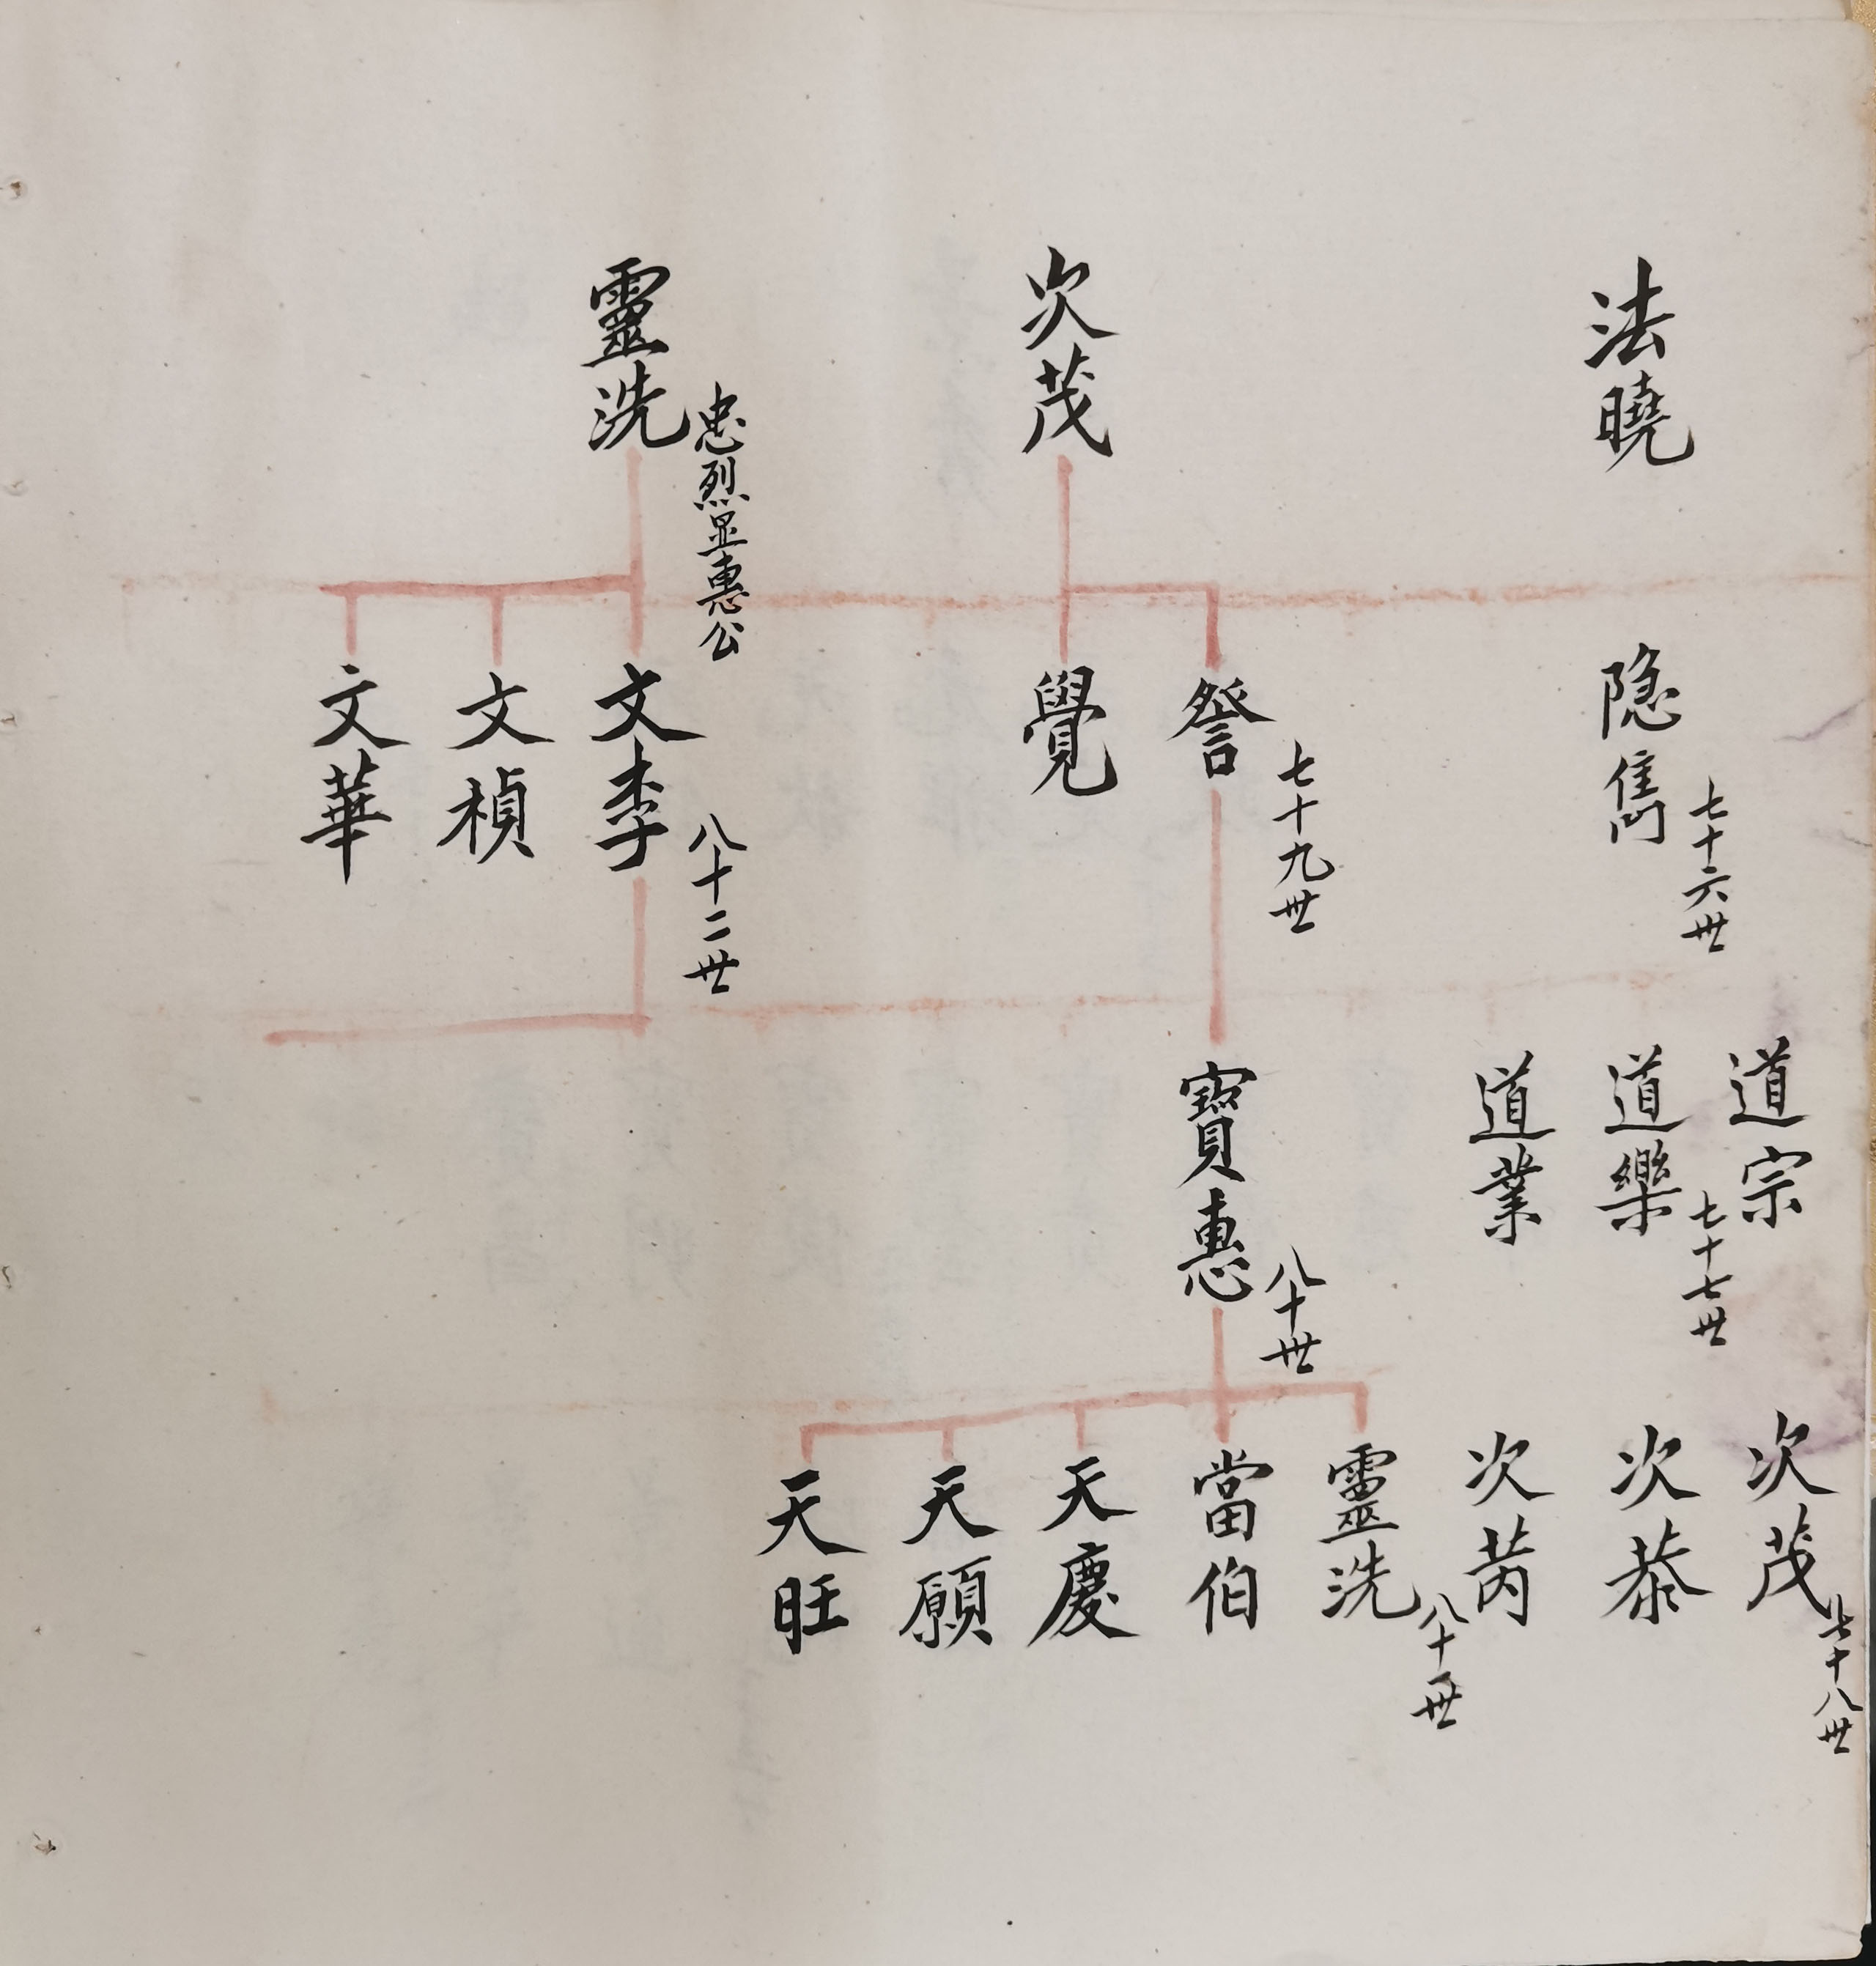 法曉
隐雋
七十六世
道宗
道樂
七十七世
道業
次茂
七十八世
次恭
次芮
次茂
詧
七十九世
覺
寶惠
八十世
靈洗
八十一世
當伯
天慶
天願
天旺
靈洗
忠烈显惠公
文季
八十二世
文楨
文華